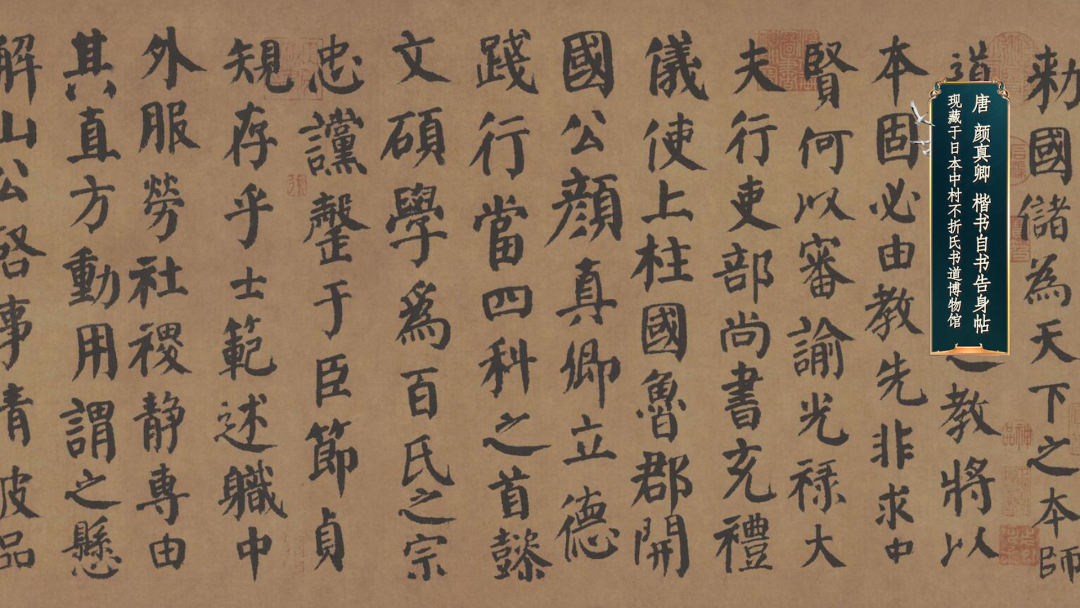 勑國儲為天下之本師
道之教將以
本固必由教先非求中
賢何以審諭光祿大
夫行吏部尚書充禮
儀使上柱國魯郡開
國公顏真卿立德
踐行當四科之首懿
文碩學爲百氏之宗
忠讜罄于臣節貞
規存乎士範述職中
外服勞社稷静專由
其直方動用謂之懸
解山公啓事清彼品
唐 颜真卿 楷书自书告身帖
现藏于日本中村不折氏书道博物馆